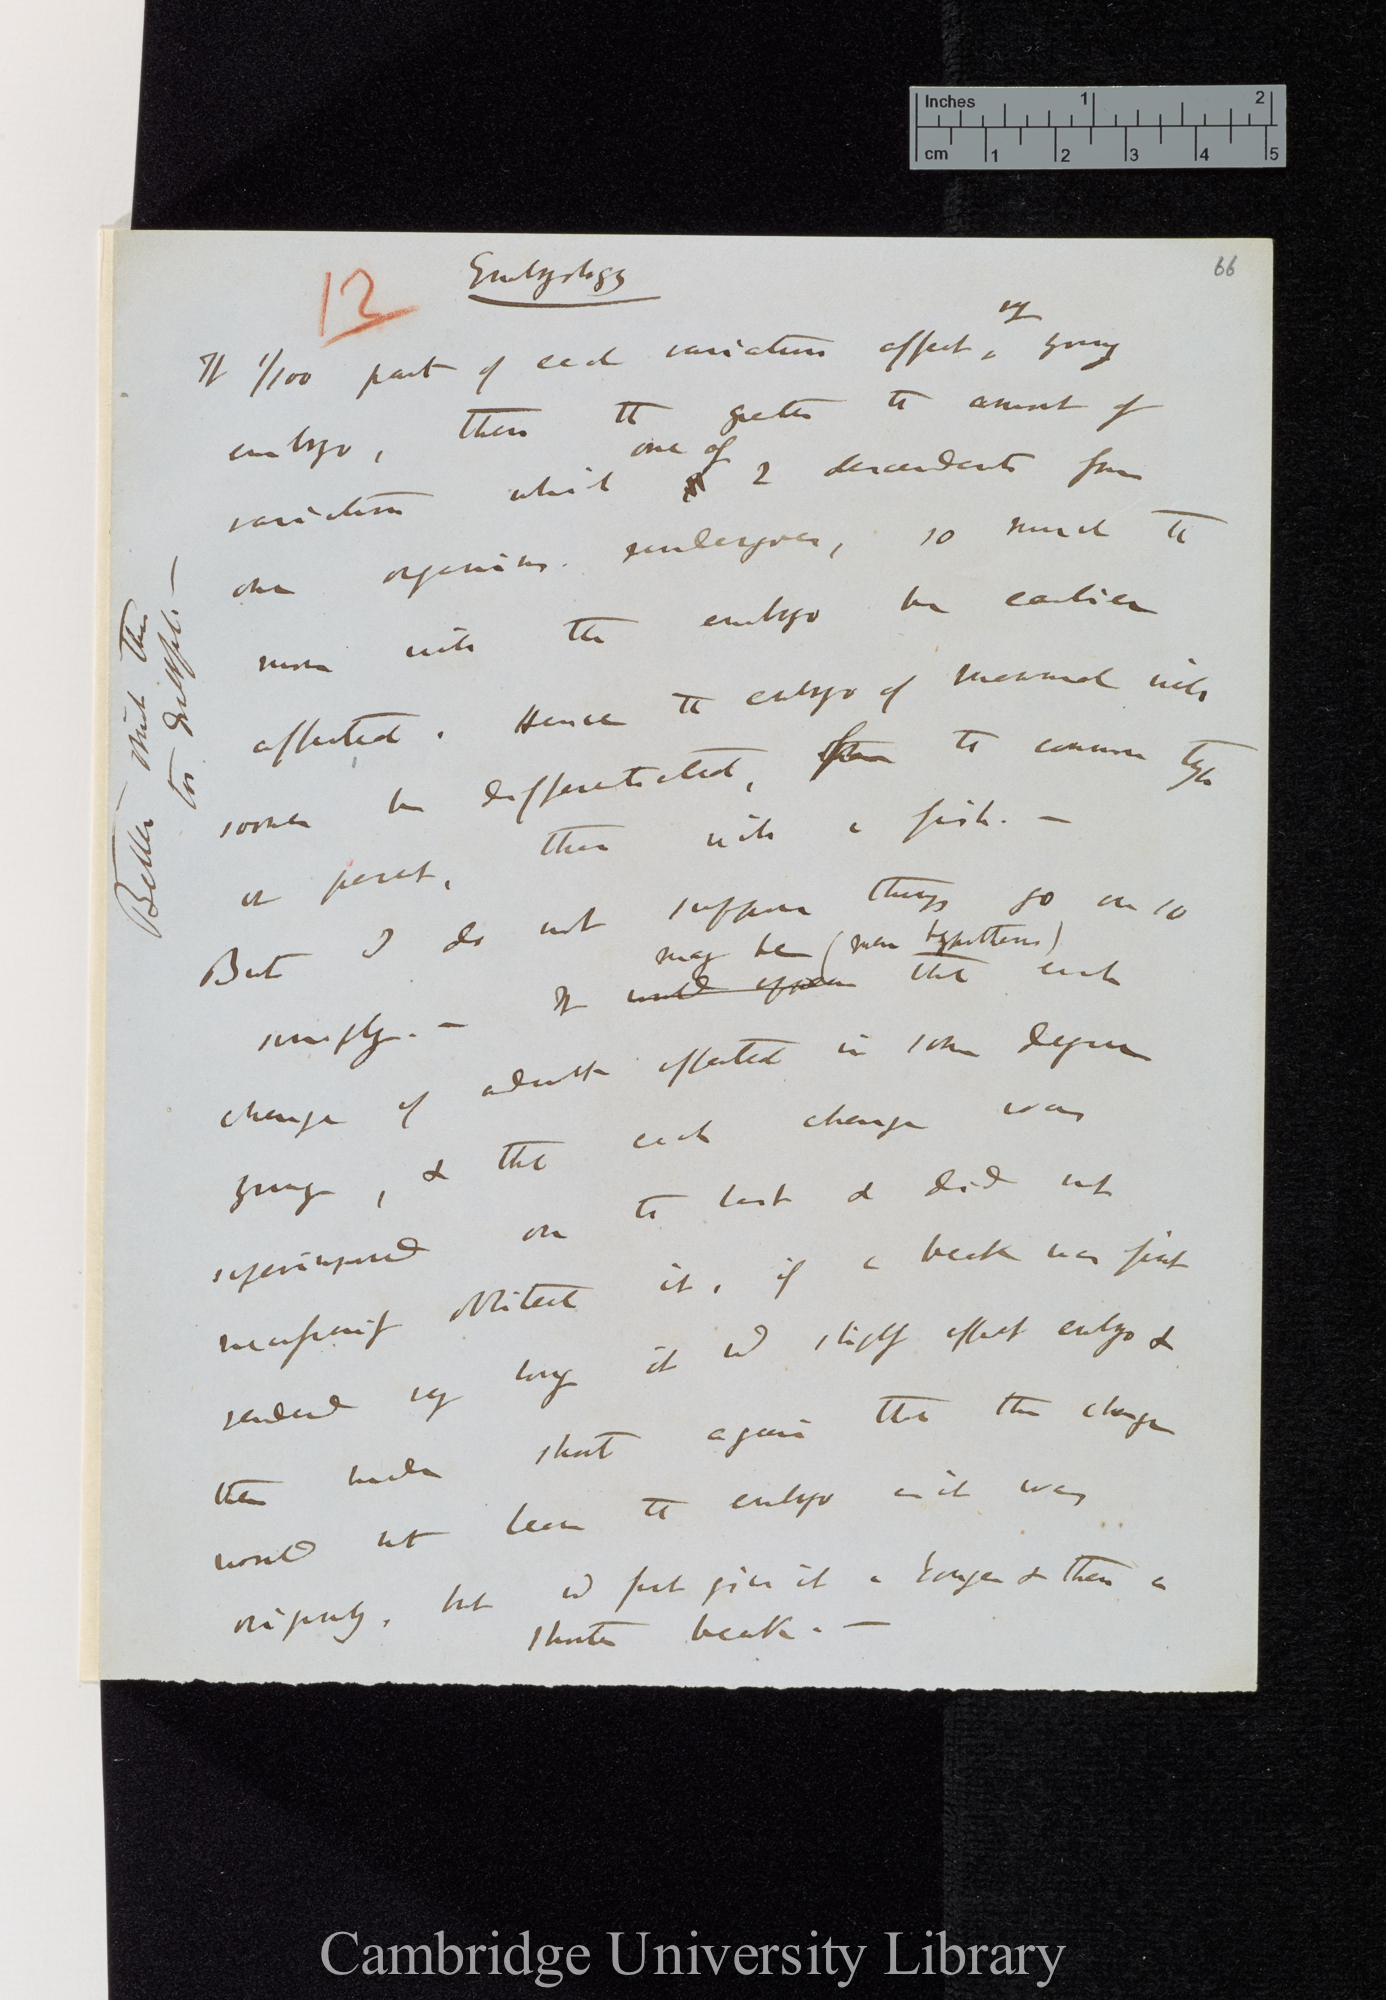 Inches 1 2
cm 1 2 3 4 5
66
13
Embryology
If 1/100 part of each variation affect, very young
embryo, then the greater the amount of
variation which one of 2 descendants from
one organism undergoes, so much the
more will the embryo be earlier
affected. Hence the embryo of mammal will
sooner be differentiated, from the common type
or parent, than will a fish. —
But I do not suppose things go on so
simply. — It would appear may be (mere hypothesis) that each
change of adult affected in some degree
young, & that each change was
superimposed on the last & did not
necessarily obliterate it, if a beak was first
rendered very long it wd slightly affect embryo &
then made short again that the change
would not leave the embryo as it was
originally, but wd first give it a longer & then a
shorter beak. —
Better think this
Cambridge University Library